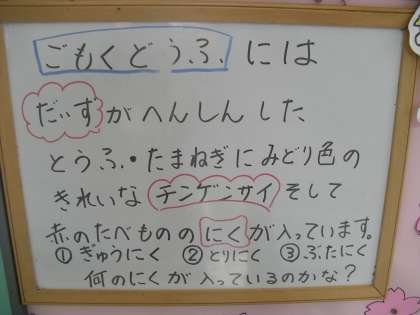 ごもくどうふには
だいずがへんしんした
とうふ・たまねぎにみどり色の
きれいなチンゲンサイそして
赤のたべもののにくが入っています。
①ぎゅうにく ②とりにく ③ぶたにく
何のにくが入っているのかな？